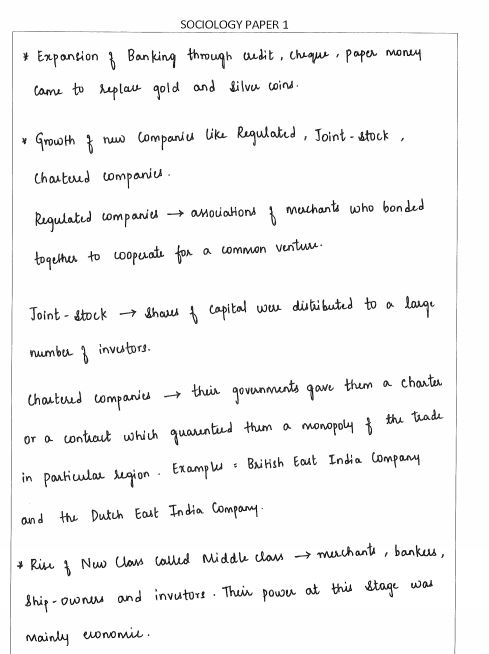 SOCIOLOGY PAPER 1
* Expansion of Banking through credit, cheque, paper money
came to replace gold and silver coins.
* Growth of new companies like Regulated, Joint-stock,
Chartered companies.
Regulated companies → associations of merchants who bonded
together to cooperate for a common venture.
Joint-stock → shares of capital were distributed to a large
number of investors.
Chartered companies → their governments gave them a charter
or a contract which guarenteed them a monopoly of the trade
in particular region. Examples = British East India Company
and the Dutch East India Company.
* Rise of New Class called Middle class → merchants, bankers,
ship-owners and investors. Their power at this stage was
mainly economic.